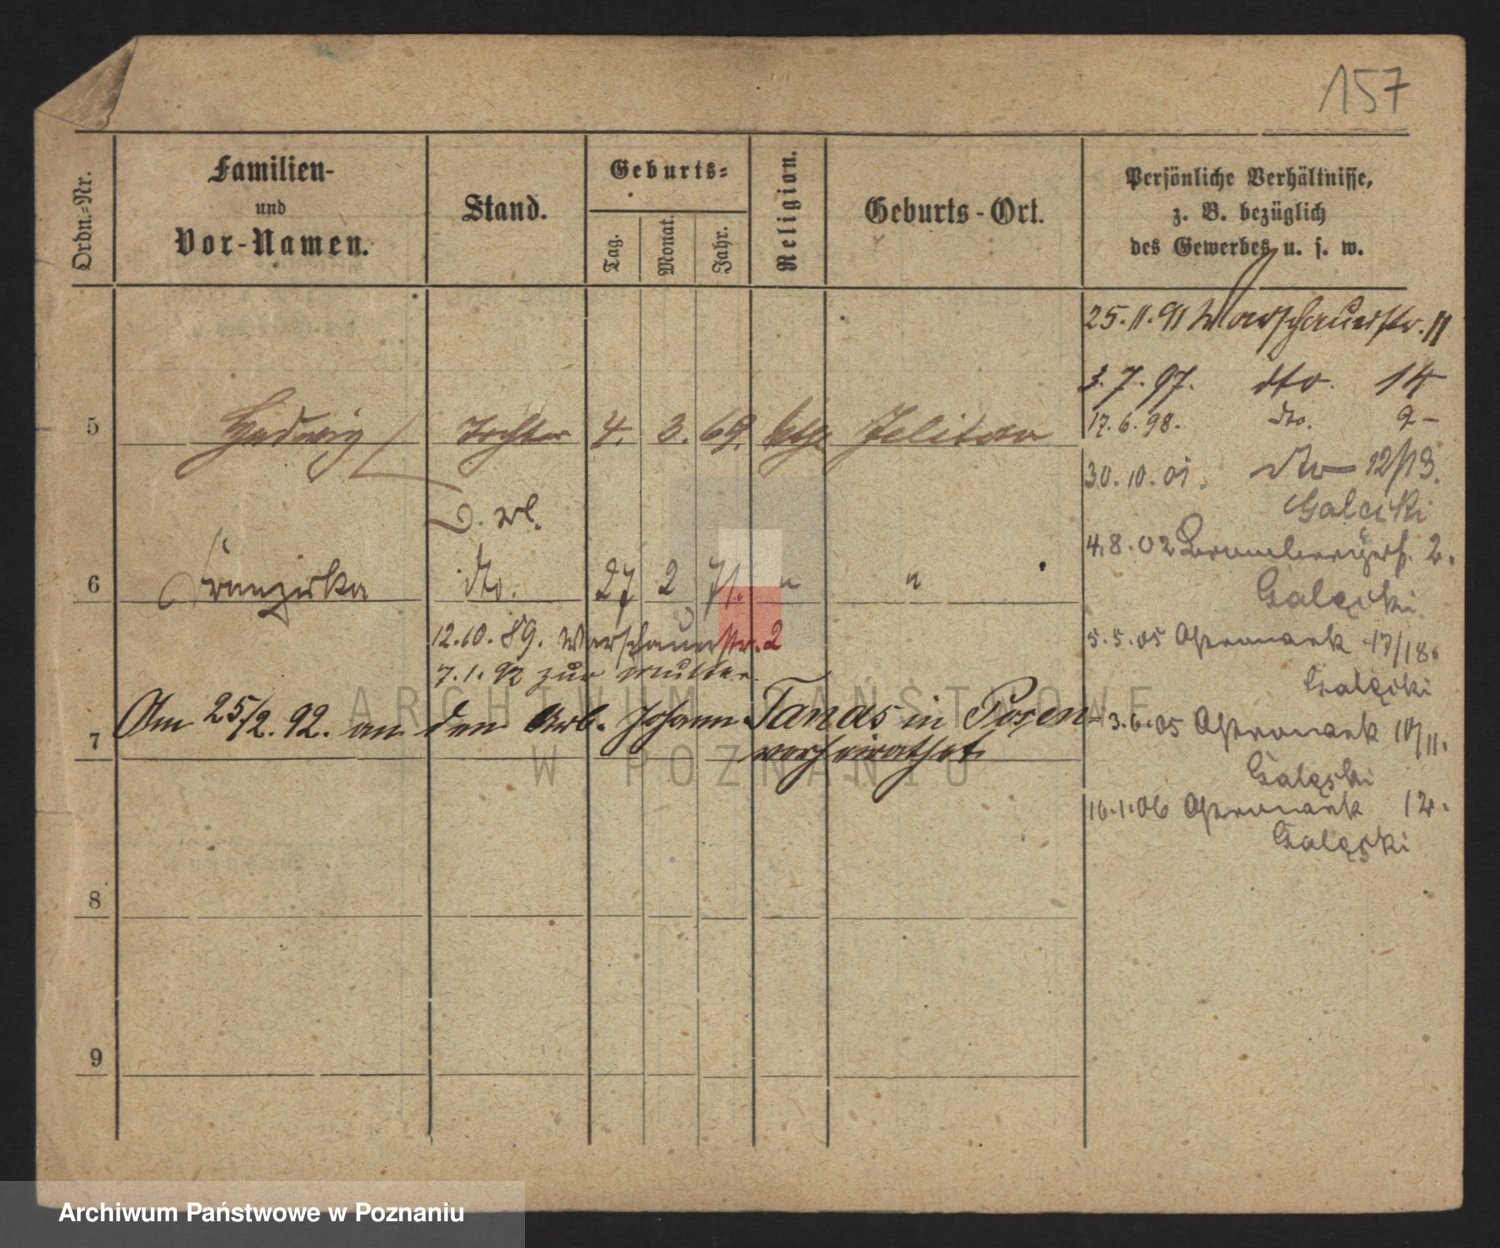 157
Ordn.-Nr.
Familien-
und
Vor-Namen.
Stand.
Geburts-
Tag.
Monat.
Jahr.
Religion.
Geburts-Ort.
Persönliche Verhältnisse,
z. B. bezüglich
des Gewerbes u. s. w.
25.11.91 Warschauerstr. 11
3.7.97. dto. 14
17.6.98. do. 2-
5 Hedwig Tochter 4. 3. 69. kth Jelitow
30.10.01. dto 12/13.
Galęcki
D. vl.
4.8.02 Brombergerstr. 2.
6 Franziska dto. 27 2 71. " "
Galęcki
12.10.89. Warschauerstr. 2
5.5.05 Ostrowek 17/18.
7.1.92 zur Mutter.
Galęcki
7 Am 25/2.92. an den Arb. Johann Tanas in Posen
verheirathet
3.6.05 Ostrowek 10/11.
Galęski
16.1.06 Ostrowek 12.
Galęski
8
9
ARCHIWUM PAŃSTWOWE
W POZNANIU
Archiwum Państwowe w Poznaniu